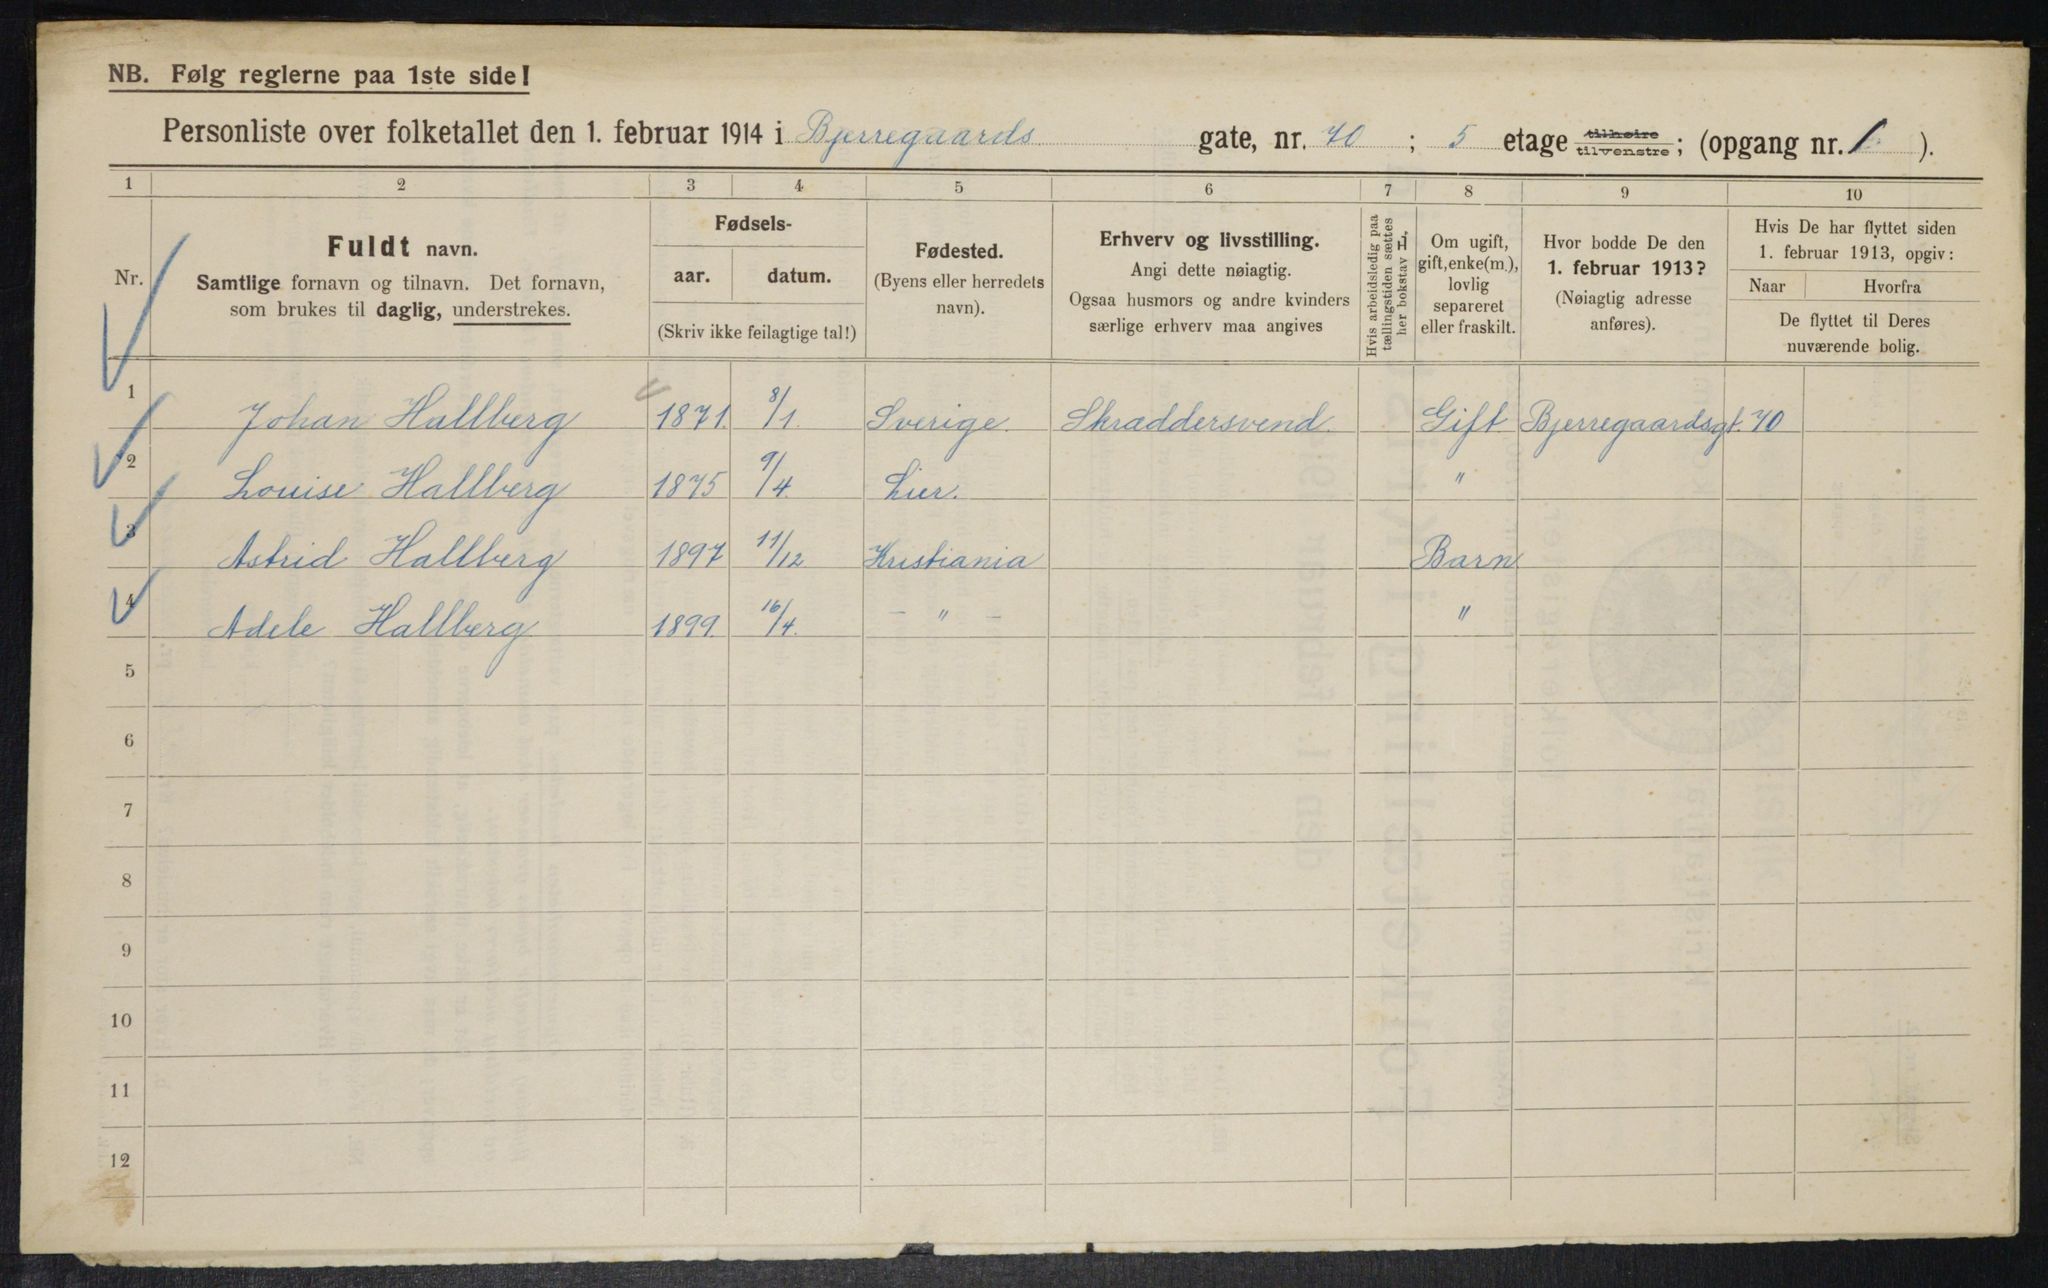 NB. Følg reglerne paa 1ste side!
Personliste over folketallet den 1. februar 1914 i Bjerregaards gate, nr. 70 ; 5 etage tilhøire tilvenstre ; (opgang nr. 1 ).
1 2 3 4 5 6 7 8 9 10
Nr.
Fuldt navn.
Samtlige fornavn og tilnavn. Det fornavn,
som brukes til daglig, understrekes.
Fødsels-
aar. datum.
(Skriv ikke feilagtige tal!)
Fødested.
(Byens eller herredets
navn).
Erhverv og livsstilling.
Angi dette nøiagtig.
Ogsaa husmors og andre kvinders
særlige erhverv maa angives
Hvis arbeidsledig paa
tællingstiden sættes
her bokstav L.
Om ugift,
gift, enke(m.),
lovlig
separeret
eller fraskilt.
Hvor bodde De den
1. februar 1913?
(Nøiagtig adresse
anføres).
Hvis De har flyttet siden
1. februar 1913, opgiv:
Naar Hvorfra
De flyttet til Deres
nuværende bolig.
1 Johan Hallberg 1871. 8/1. Sverige. Skræddersvend. Gift Bjerregaardsgt. 70
2 Louise Hallberg 1875 9/4. Lier. "
3 Astrid Hallberg 1897 11/12 Kristiania Barn
4 Adele Hallberg 1899. 16/4. – " – "
5
6
7
8
9
10
11
12